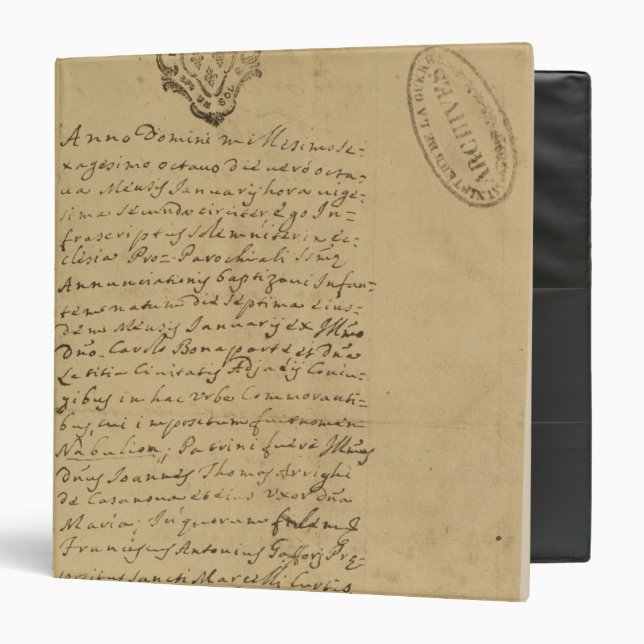 UN SOL
MINISTERE DE LA GUERRE
ARCHIVES
Anno Domini millesimo se=
xagesimo octavo die vero octa=
va Mensis Januarij hora vige=
sima secunda circiter Ego In=
frascriptus solemniter in ec=
clesia Pro=Parochiali
Annunciationis baptizavi Infan=
tem natum die septima eius=
dem Mensis Januarij ex Illmo
Dno. Carolo Bonaparte et Dna
Letitia Civitatis Adjacij Coniu=
gibus in hac Urbe Commoranti=
bus, cui impositum fuit nomen
Nabulion; Patrini fuere Illmus
Dnus Joannes Thomas Arrighi
de Casanova et eius uxor Dna
Maria; In quorum fidem
Franciscus Antonius Pre=
positus Sancti Marcelli